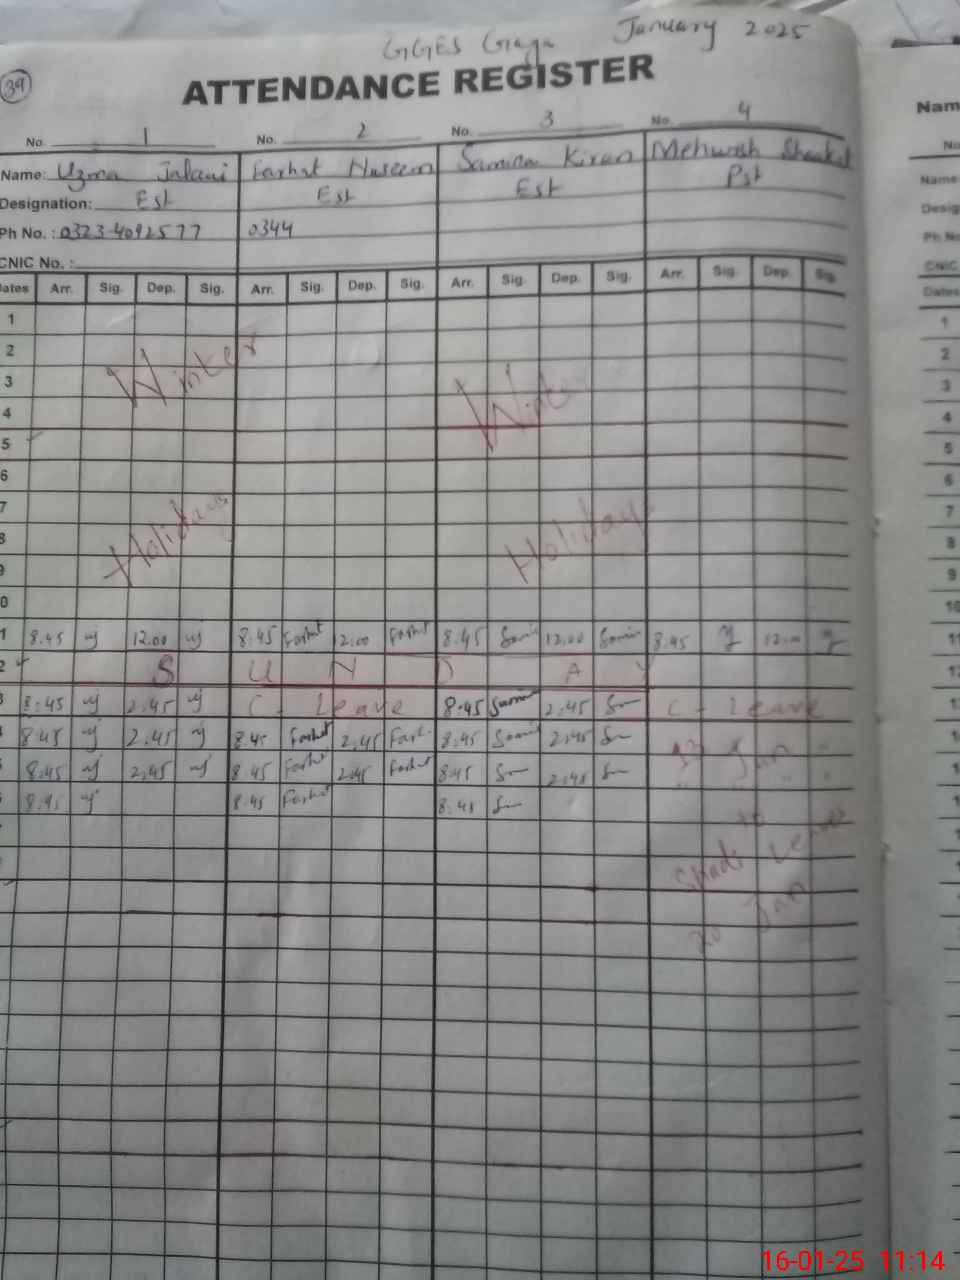 GGES Gaga January 2025
39
ATTENDANCE REGISTER
No. 1 No. 2 No. 3 No. 4
Name: Uzma Jalani Farhat Naseem Samina Kiran Mehwish Shaukat
Designation: Est Est Est Pst
Ph No. : 0323-4092577 0344
CNIC No. :
Dates Arr. Sig. Dep. Sig. Arr. Sig. Dep. Sig. Arr. Sig. Dep. Sig. Arr. Sig. Dep. Sig.
1
2
3
4
5
6
7
8
9
0
Winter Winter
Holidays Holidays
1 8.45 uj 12.00 uj 8.45 Farhat 12.00 Farhat 8.45 Samin 12.00 Samin 8.45 12.00
2 S U N D A Y
3 8:45 uj 2.45 uj C - Leave 8.45 Samin 2.45 C - Leave
8.45 uj 2.45 uj 8.45 Farhat 2.45 Farhat 8.45 Samin 2.45
8.45 uj 2.45 uj 8.45 Farhat 2.45 Farhat 8.45 2.45
8.45 uj 8.45 Farhat 8.45
13 Jan
to
Shadi Leave
20 Jan
Nam
No
Name
Desig
Ph No
CNIC
Dates
1
2
3
4
5
6
7
8
9
10
11
12
16-01-25 11:14